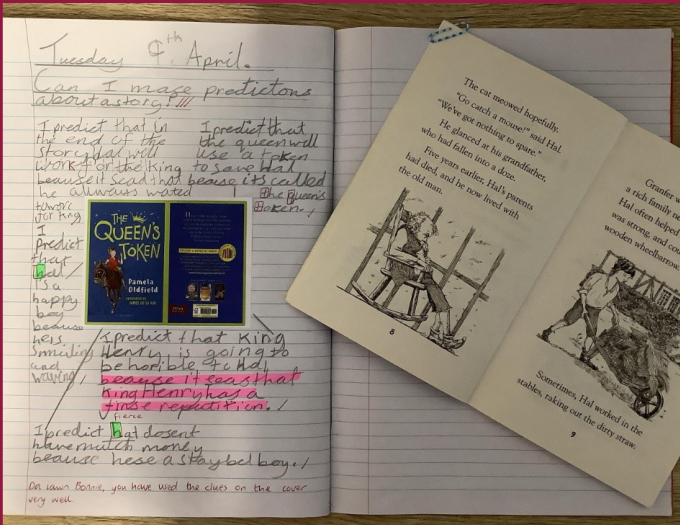 Tuesday 9th April.
Can I mace predictons
about a story? ///
I predict that in
the end of the
story hal will
work for the King
beause it sead that
he allways wated
towork
for King
I predict that
the queen will
use a token
to save hal
beause its called
the Queens
Token.
I
predict
that
hal
is a
happy
boy
because
he is
Smiling
and
waving
THE
QUEEN'S
TOKEN
Pamela
Oldfield
I predict that King
Henry is going to
be horible to Hal
because it seas that
King Henry has a
firse repatition.
fierce
I predict hal dosent
have mutch money
beause hese a staybel boy.
you have used the clues on the cover
very well.
The cat meowed hopefully.
"Go catch a mouse!" said Hal.
"We've got nothing to spare."
He glanced at his grandfather,
who had fallen into a doze.
Five years earlier, Hal's parents
had died, and he now lived with
the old man.
8
Granfer w
a rich family ne
Hal often helped
was strong, and cou
wooden wheelbarrow
Sometimes, Hal worked in the
stables, raking out the dirty straw.
9